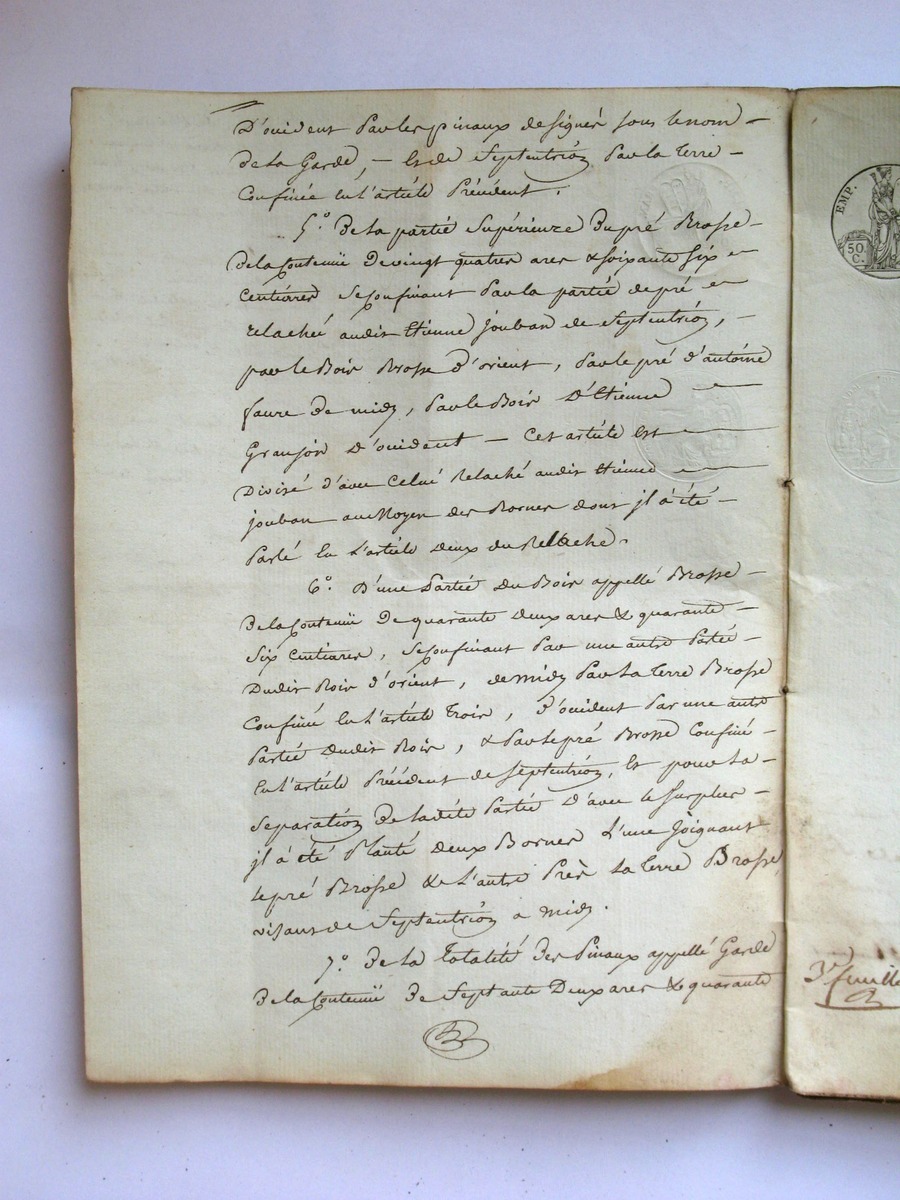 D'occident Par les pinaux designés sous le nom –
de la Garde, – Et de Septentrion Par la terre –
Confinée en l'article Précédent.
5.° De la partie Supérieure Du pré Brosse –
De la Contenue De vingt quatres ares & soixante six –
Centiares Se Confinant Par la partie de pré –
relachée audit Etienne jouban de Septentrion, –
par le Bois Brosse d'orient, Par le pré d'antoine
faure De midy, Par le Bois D'Etienne –
Granjon D'occident – Cet article Est –
Divisé d'avec Celui Relaché audit Etienne –
jouban au Moyen des Bornes dont jl a été –
Parlé En L'article Deux du Relache.
6.° D'une Partie Du Bois appellé Brosse –
De la Contenue De quarante deux ares & quarante –
Six Centiares, Se Confinant Par une autre Partie –
Dudit Bois d'orient, de midy Par la Terre Brosse
Confinée En L'article Trois, d'occident Par une autre
Partie Dudit Bois, & Par le pré Brosse Confiné –
En l'article Précédent de Septentrion, Et pour la –
Separation De ladite Partie D'avec le Surplus –
jl a été Planté Deux Bornes L'une Joignant
le pré Brosse & L'autre Près La Terre Brosse,
visant de Septentrion a midy.
7.° De la Totalité Des Pinaux appellé Garde
De la Contenue De Septante Deux ares & quarante
EMP.
50
C.
3e feuille